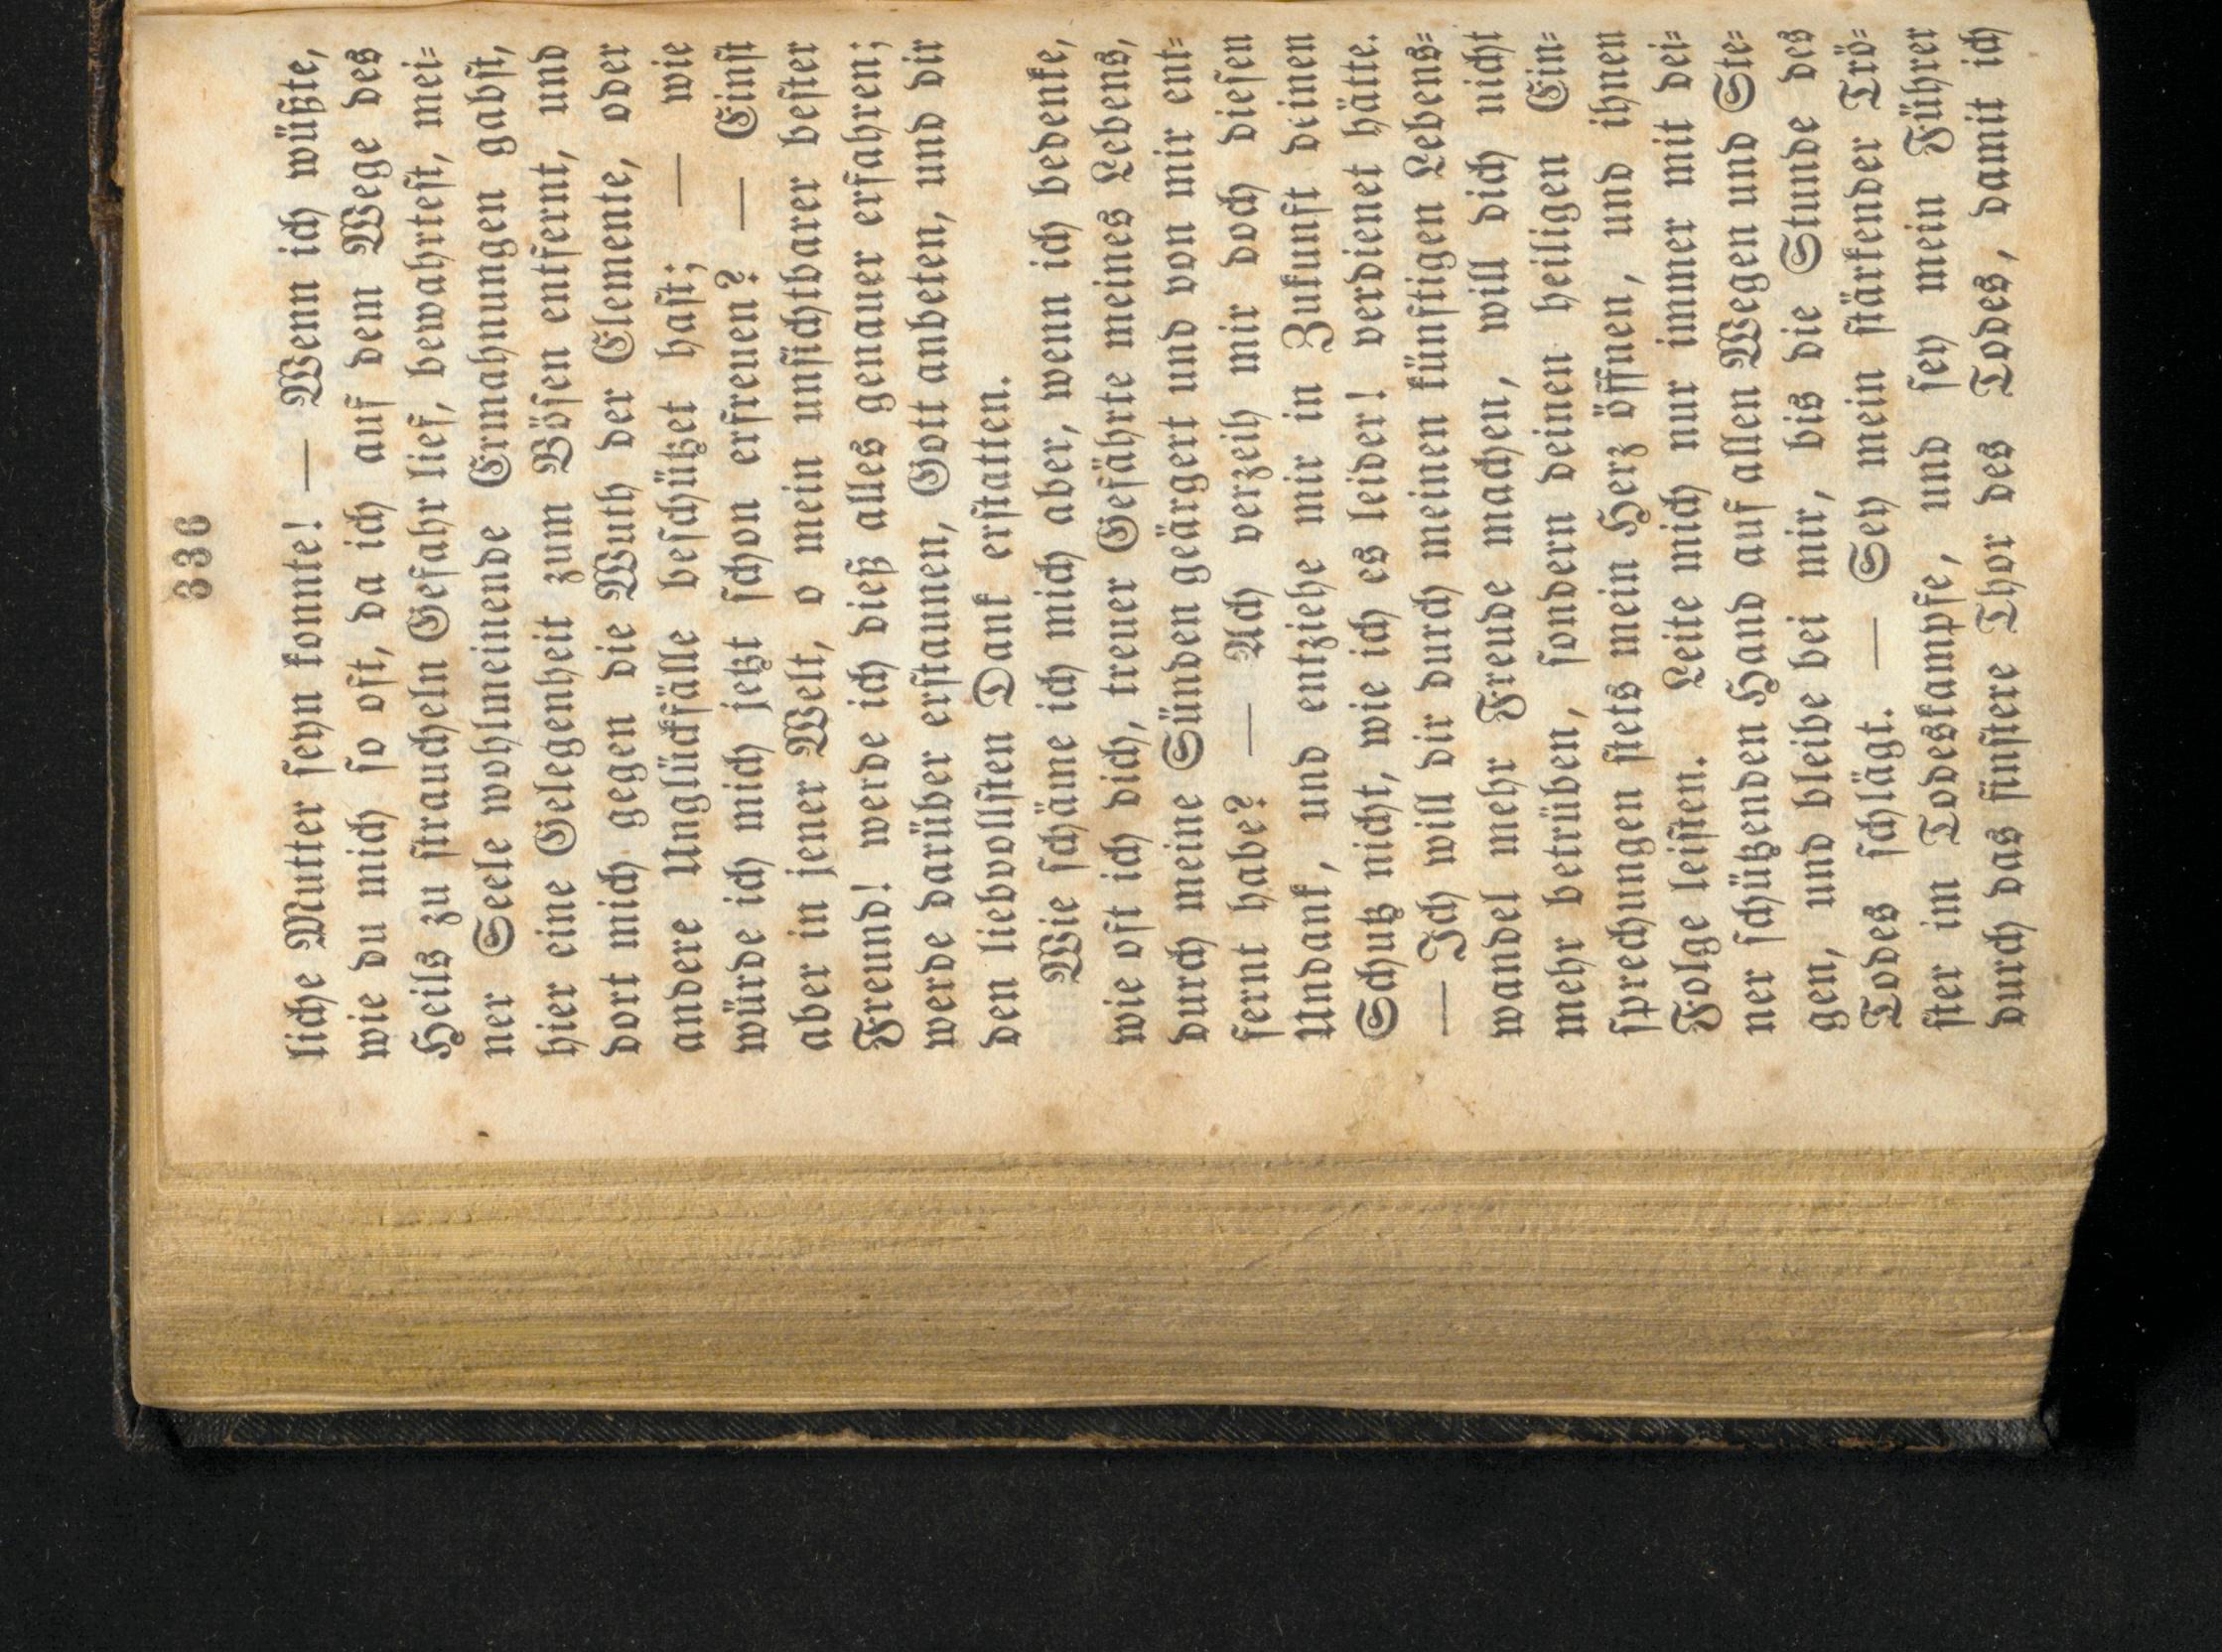 336
liche Mutter seyn konnte! — Wenn ich wüßte,
wie du mich so oft, da ich auf dem Wege des
Heils zu straucheln Gefahr lief, bewahrtest, mei=
ner Seele wohlmeinende Ermahnungen gabst,
hier eine Gelegenheit zum Bösen entfernt, und
dort mich gegen die Wuth der Elemente, oder
andere Unglückfälle beschützet hast; — wie
würde ich mich jetzt schon erfreuen? — Einst
aber in jener Welt, o mein unsichtbarer bester
Freund! werde ich dieß alles genauer erfahren;
werde darüber erstaunen, Gott anbeten, und dir
den liebvollsten Dank erstatten.
Wie schäme ich mich aber, wenn ich bedenke,
wie oft ich dich, treuer Gefährte meines Lebens,
durch meine Sünden geärgert und von mir ent=
fernt habe? — Ach verzeih mir doch diesen
Undank, und entziehe mir in Zukunft deinen
Schutz nicht, wie ich es leider! verdienet hätte.
— Ich will dir durch meinen künftigen Lebens=
wandel mehr Freude machen, will dich nicht
mehr betrüben, sondern deinen heiligen Ein=
sprechungen stets mein Herz öffnen, und ihnen
Folge leisten. Leite mich nur immer mit dei=
ner schützenden Hand auf allen Wegen und Ste=
gen, und bleibe bei mir, bis die Stunde des
Todes schlägt. — Sey mein stärkender Trö=
ster im Todeskampfe, und sey mein Führer
durch das finstere Thor des Todes, damit ich